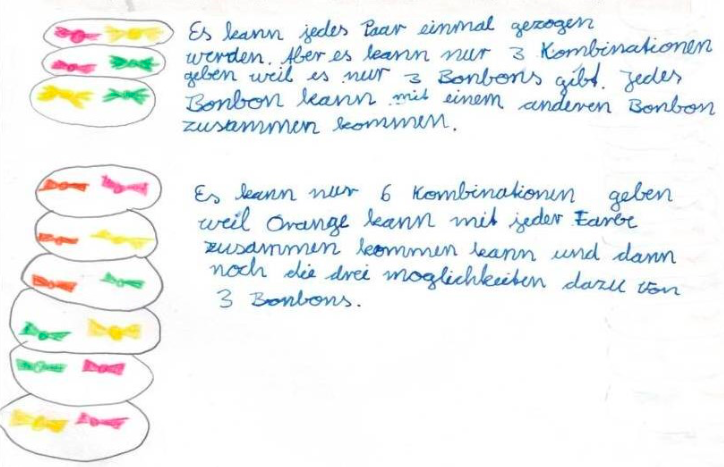 Es kann jedes Paar einmal gezogen
werden. Aber es kann nur 3 Kombinationen
geben weil es nur 3 Bonbons gibt. Jedes
Bonbon kann mit einem anderen Bonbon
zusammen kommen.
Es kann nur 6 Kombinationen geben
weil Orange kann mit jeder Farbe
zusammen kommen kann und dann
noch die drei moglichkeiten dazu von
3 Bonbons.